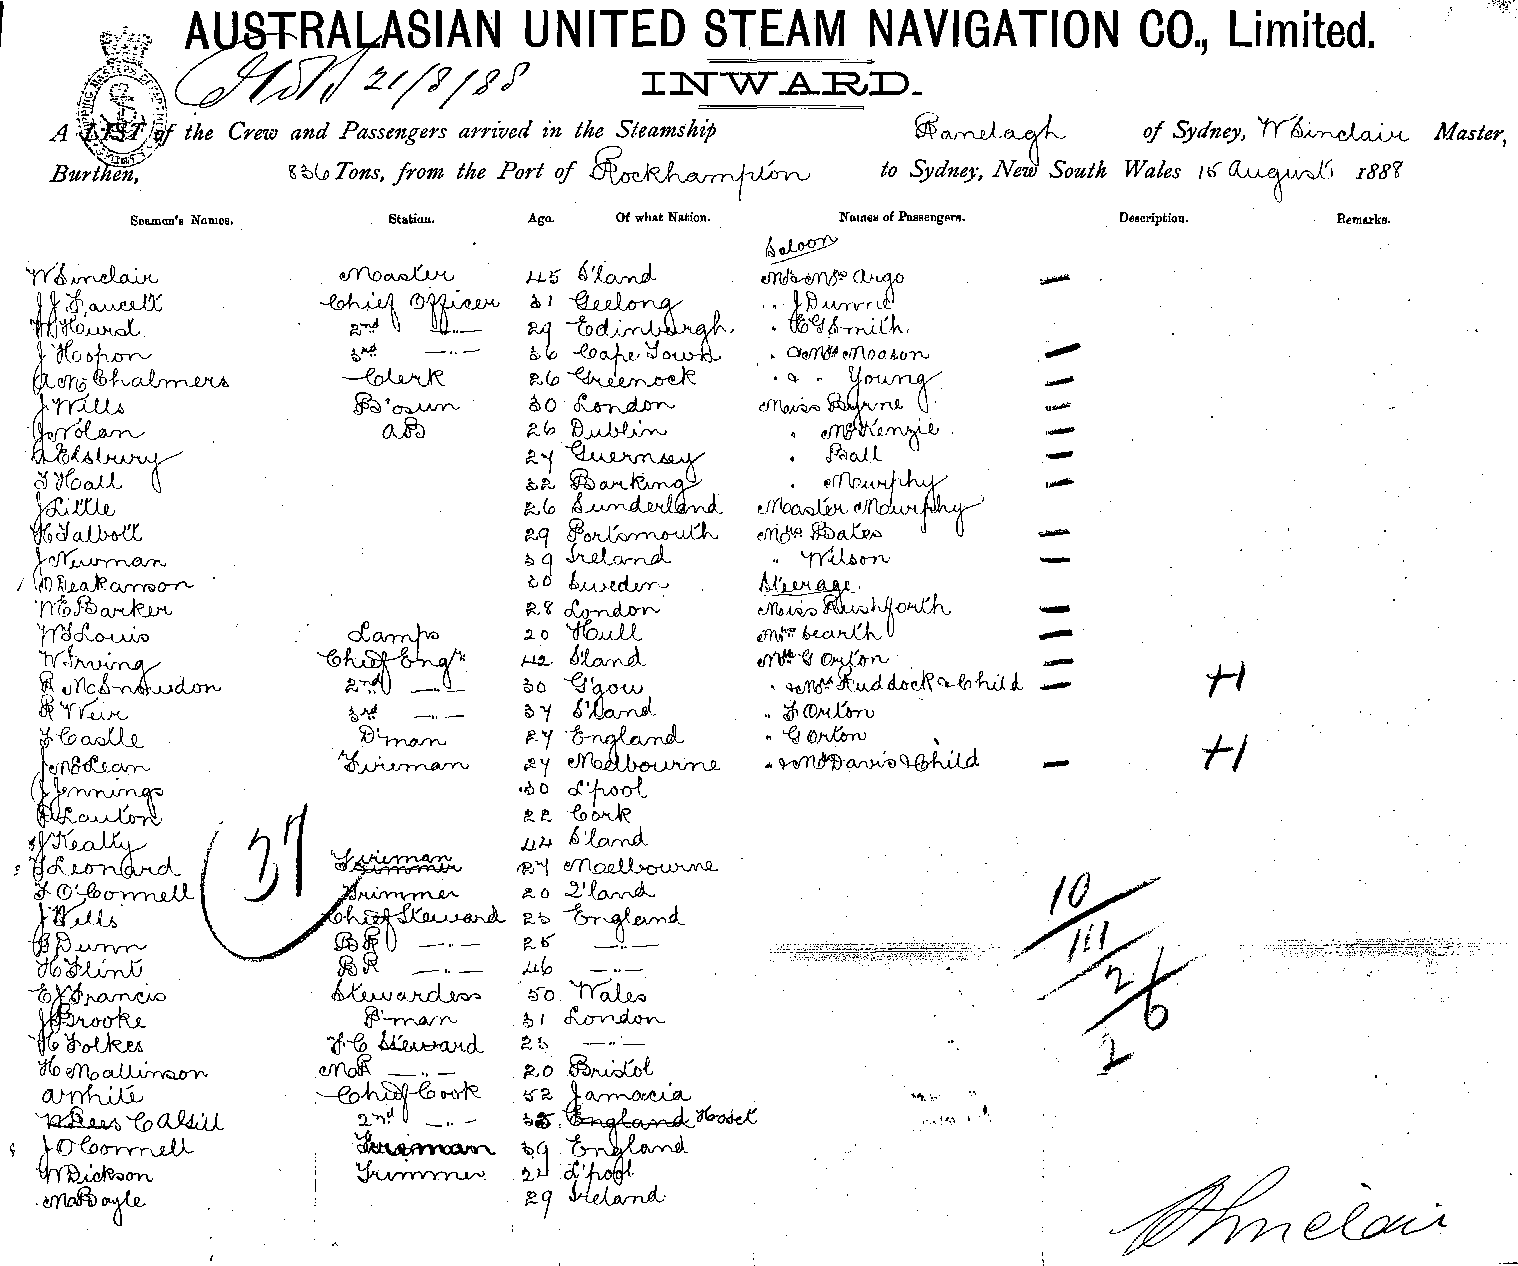 AUSTRALASIAN UNITED STEAM NAVIGATION CO., Limited.
21/8/88
INWARD.
A LIST of the Crew and Passengers arrived in the Steamship Ranelagh of Sydney, W Sinclair Master,
Burthen, 836 Tons, from the Port of Rockhampton to Sydney, New South Wales 15 August 1888
Seaman's Names. Station. Age. Of what Nation. Names of Passengers. Description. Remarks.
Saloon
W Sinclair Master 45 S'land Mr & Mrs Argo
J J Faucett Chief Officer 31 Geelong " J Dunne
W Hurst 2nd —"— 29 Edinburgh " H G Smith
J Hopson 3rd —"— 36 Cape Town " & Mrs Moason
A M Chalmers Clerk 26 Greenock " & " Young
J Wills B'osun 30 London Miss Byrne
J Nolan AB 26 Dublin " McKenzie
A Edsbury 27 Guernsey " Ball
F Hall 32 Barking " Murphy
J Little 26 Sunderland Master Murphy
H Talbott 29 Portsmouth Mrs Bates
J Newman 39 Ireland " Wilson
O Deakanson 30 Sweden Steerage
W E Barker 28 London Miss Rushforth
W J Louis Lamps 20 Hull Mrs Searth
W Irving Chief Engr 42 S'land Mrs G Orton
R McSnowdon 2nd —"— 30 G'gow " & Mrs Ruddock & Child +1
R Weir 3rd —"— 37 S'land " F Orton
F Castle D'man 27 England " G Orton
J McLean Fireman 27 Melbourne " & Mrs Davis & Child +1
J Jennings 30 L'pool
Lauton 22 Cork
J Kealty 44 S'land
J Leonard Fireman 27 Melbourne
F O'Connell Trimmer 20 Q'land
J Wills Chief Steward 23 England
B Dunn BR —"— 25 —"—
H Flint BR —"— 46 —"—
E J Francis Stewardess 50 Wales
J Brooke P'man 31 London
H Folkes F C Steward 23 —"—
H Mallinson MR —"— 20 Bristol
A White Chief Cook 52 Jamacia
C Alsill 2nd —"— 35 England
J O'Connell Fireman 39 England
W Dickson Trimmer 24 L'pool
M Boyle 29 Ireland
37
10
111
26
2
W Sinclair